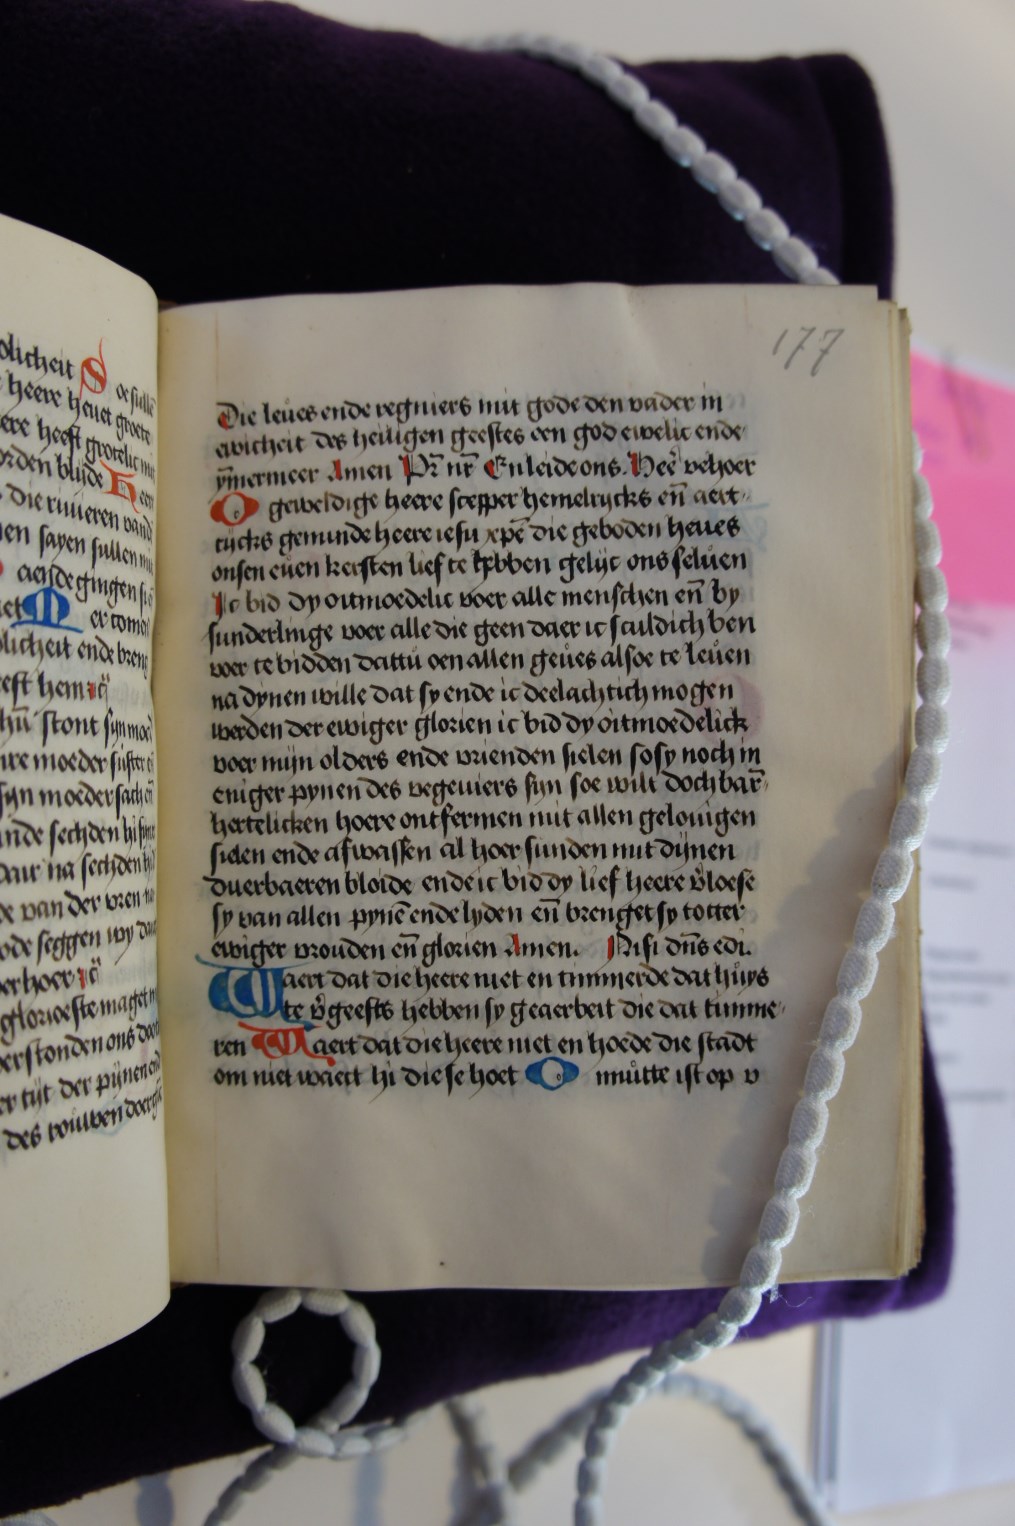 olicheit S oe sulle
heere heuet groete
ere heeft grotelic
orden blijde H
die riuieren
en sayen sullen
aende gingen
M er
olicheit ende
eft hem
stont syn
moeder
syn moeder
ende sechden hi
na sechden
de van der vren
ode seggen wy
hoer
glorioeste maget
verstonden ons
er tijt der pijnen
des
177
Die leues ende regniers mit gode den vader in
ewicheit des heiligen geestes een god ewelic ende
ÿmermeer Amen Pr̄ nr̄ Enleide ons. Heē vehoer
O geweldige heere scepper hemelrycks en̄ aert
rijcks gemunde heere iesu xp̄e die geboden heues
onsen euen kersten lief te hebben gelijc ons seluen
Ic bid dy oitmoedelic voer alle menschen en̄ by
sunderlinge voer alle die geen daer ic sculdich ben
voer te bidden dattu oen allen geues alsoe te leuen
na dynen wille dat sy ende ic deelachtich mogen
werden der ewiger glorien ic bid dy oitmoedelick
voer mijn olders ende vrienden sielen so sy noch in
eniger pynen des vegeuiers syn soe wilt doch bar̄
hertelicken hoere ontfermen mit allen gelouigen
sielen ende afwassen al hoer sunden mit dijnen
duerbaeren bloide ende ic bid dy lief heere v̄loese
sy van allen pynē ende lyden en̄ brenget sy totter
ewiger vrouden en̄ glorien Amen. Nisi dn̄s edi.
Taert dat die heere niet en timmerde dat huys
te v̄geefts hebben sy gearbeit die dat timme
ren Taert dat die heere niet en hoede die stadt
om niet waect hi die se hoet O nnutte ist op v